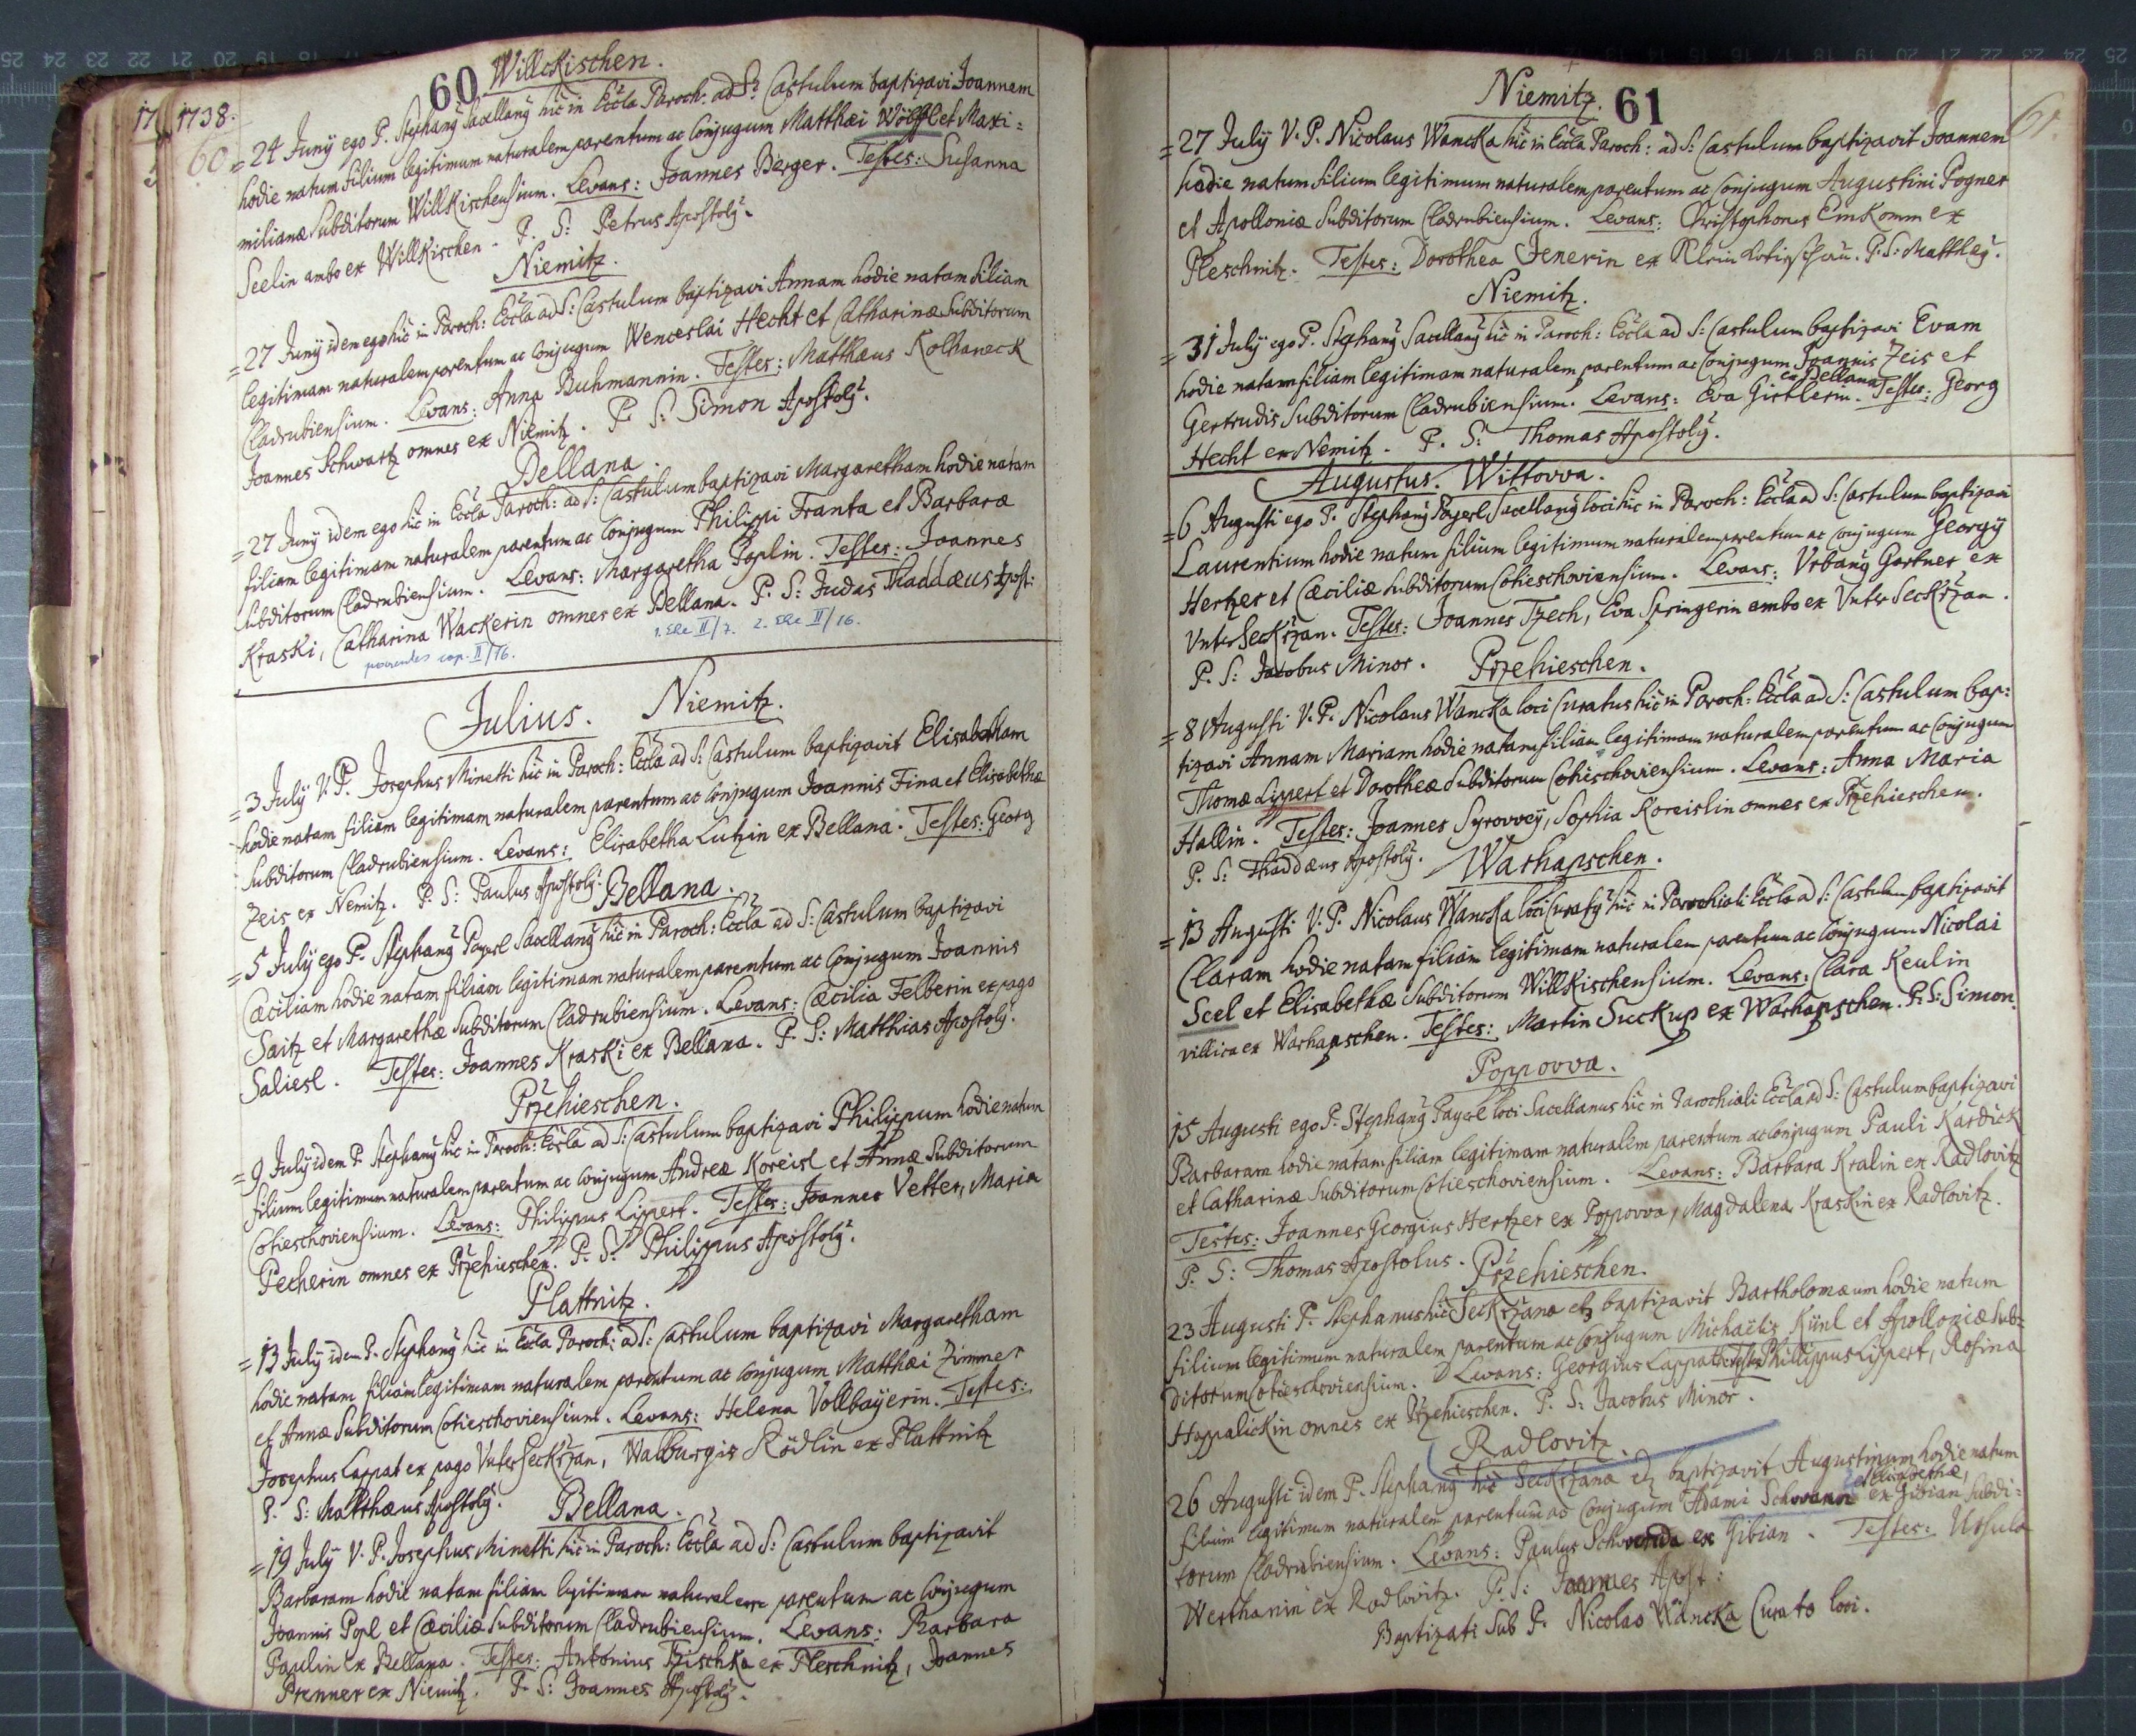 60 Willckischen.
17 1738.
60 = 24 Juny ego P. Stephanỹ Sacellanỹ hic in Eccla Paroch: ad S: Castulum baptizavi Joannem
hodie natum filium legitimum naturalem parentum ac Conjugum Matthæi Wölfl et Maxi=
milianæ Subditorum Willkischensium. Levans: Joannes Berger. Testes: Susanna
Seelin ambo ex Willkischen. P. S: Petrus Apostolỹ.
Niemitz.
= 27 Juny idem ego hic in Paroch: Eccla ad S: Castulum baptizavi Annam hodie natam filiam
legitimam naturalem parentum ac Conjugum Wenceslai Hecht et Catharinæ Subditorum
Cladrubiensium. Levans: Anna Buhmannin. Testes: Matthæus Kolhaneck
Joannes Schwartz omnes ex Niemitz. P. S: Simon Apostolỹ.
Bellana.
= 27 Juny idem ego hic in Eccla Paroch: ad S: Castulum baptizavi Margaretham hodie natam
filiam legitimam naturalem parentum ac Conjugum Philippi Franta et Barbaræ
Subditorum Cladrubiensium. Levans: Margaretha Poplin. Testes: Joannes
Kraski, Catharina Wackerin omnes ex Bellana. P. S: Judas Thaddæus Apost:
1. Ehe II/7. 2. Ehe II/16.
parentes cop. II/16.
Julius. Niemitz.
= 3 July V. P. Josephus Minetti hic in Paroch: Eccla ad S: Castulum baptizavit Elisabetham
hodie natam filiam legitimam naturalem parentum ac Conjugum Joannis Fina et Elisabethæ
Subditorum Cladrubiensium. Levans: Elisabetha Lutzin ex Bellana. Testes: Georg
Zeis ex Nemitz. P. S: Paulus Apostolỹ.
Bellana.
= 5 July ego P. Stephanỹ Payerl Sacellanỹ hic in Paroch: Eccla ad S: Castulum baptizavi
Cæciliam hodie natam filiam legitimam naturalem parentum ac Conjugum Joannis
Saitz et Margarethæ Subditorum Cladrubiensium. Levans: Cæcilia Felberin ex pago
Saliesl. Testes: Joannes Kraski ex Bellana. P. S: Matthias Apostolỹ.
Przehieschen.
= 9 July idem P. Stephanỹ hic in Paroch: Eccla ad S: Castulum baptizavi Philippum hodie natum
filium legitimum naturalem parentum ac Conjugum Andreæ Koreisl et Annæ Subditorum
Cotieschoviensium. Levans: Philippus Lippert. Testes: Joannes Vetter, Maria
Pecherin omnes ex Przehieschen. P. S: Philippus Apostolỹ.
Plattnitz.
= 13 July idem P. Stephanỹ hic in Eccla Paroch: ad S: Castulum baptizavi Margaretham
hodie natam filiam legitimam naturalem parentum ac Conjugum Matthæi Zimmer
et Annæ Subditorum Cotieschoviensium. Levans: Helena Vollbayerin. Testes:
Josephus Lappat ex pago Unter Seckrzan, Walburgis Rödlin ex Plattnitz
P. S: Matthæus Apostolỹ.
Bellana.
= 19 July V. P. Josephus Minetti hic in Paroch: Eccla ad S: Castulum baptizavit
Barbaram hodie natam filiam legitimam naturalem parentum ac Conjugum
Joannis Popl et Cæciliæ Subditorum Cladrubiensium. Levans: Barbara
Paulin ex Bellana. Testes: Antonius Tzischka ex Pleschnitz, Joannes
Prenner ex Niemitz. P. S: Joannes Apostolỹ.
Niemitz. 61
61.
= 27 July V. P. Nicolaus Wancka hic in Eccla Paroch: ad S: Castulum baptizavit Joannem
hodie natum filium legitimum naturalem parentum ac Conjugum Augustini Pogner
et Apolloniæ Subditorum Cladrubiensium. Levans: Christophorus Einkomm ex
Pleschnitz. Testes: Dorothea Jenerin ex Klein. P. S: Matthæỹ.
Niemitz.
= 31 July ego P. Stephanỹ Sacellanỹ hic in Paroch: Eccla ad S: Castulum baptizavi Evam
hodie natam filiam legitimam naturalem parentum ac Conjugum Joannis Zeis et
Gertrudis Subditorum Cladrubiensium. Levans: Eva Girtlerin ex Bellana. Testes: Georg
Hecht ex Nemitz. P. S: Thomas Apostolỹ.
Augustus. Wittovva.
= 6 Augusti ego P. Stephanỹ Payerl Sacellanỹ loci hic in Paroch: Eccla ad S: Castulum baptizavi
Laurentium hodie natum filium legitimum naturalem parentum ac Conjugum Georgỹ
Hertzer et Cæciliæ Subditorum Cotieschoviensium. Levans: Vrbanỹ Gartner ex
Vnter Seckrzan. Testes: Joannes Tzech, Eva Springerin ambo ex Vnter Seckrzan.
P. S: Jacobus Minor.
Przehieschen.
= 8 Augusti V. P. Nicolaus Wancka loci Curatus hic in Paroch: Eccla ad S: Castulum bap:
tizavi Annam Mariam hodie natam filiam legitimam naturalem parentum ac Conjugum
Thomæ Lippert et Dorotheæ Subditorum Cotieschoviensium. Levans: Anna Maria
Hallin. Testes: Joannes Syrovvey, Sophia Koreislin omnes ex Przehieschen.
P. S: Thaddæus Apostolỹ.
Warhapschen.
= 13 Augusti V. P. Nicolaus Wancka loci Curatỹ hic in Parochiali Eccla ad S: Castulum baptizavit
Claram hodie natam filiam legitimam naturalem parentum ac Conjugum Nicolai
Scel et Elisabethæ Subditorum Willkischensium. Levans: Clara Keulin
villica ex Warhapschen. Testes: Martin Suckup ex Warhapschen. P. S: Simon.
Poppovva.
15 Augusti ego P. Stephanỹ Payerl loci Sacellanus hic in Parochiali Eccla ad S: Castulum baptizavi
Barbaram hodie natam filiam legitimam naturalem parentum ac Conjugum Pauli Kardick
et Catharinæ Subditorum Cotieschoviensium. Levans: Barbara Kralin ex Radlovitz
Testes: Joannes Georgius Hertzer ex Poppovva, Magdalena Kraskin ex Radlovitz.
P. S: Thomas Apostolus.
Przehieschen.
23 Augusti P. Stephanus hic Seckrzanæ baptizavit Bartholomæum hodie natum
filium legitimum naturalem parentum ac Conjugum Michaëlis Künl et Apolloniæ Sub=
ditorum Cotieschoviensium. Levans: Georgius Lappat. Testes Phillippus Lippert, Rosina
Happalickin omnes ex Przehieschen. P. S: Jacobus Minor.
Radlovitz.
26 Augusti idem P. Stephanỹ hic Seckrzanæ baptizavit Augustinum hodie natum
filium legitimum naturalem parentum ac Conjugum Adami Schwanr et Elisabethæ, ex Gibian Subdi=
torum Cladrubiensium. Levans: Paulus ex Gibian. Testes: Ursula
Werthanin ex Radlovitz. P. S: Joannes Apost:
Baptizati Sub P. Nicolao Wancka Curato loci.